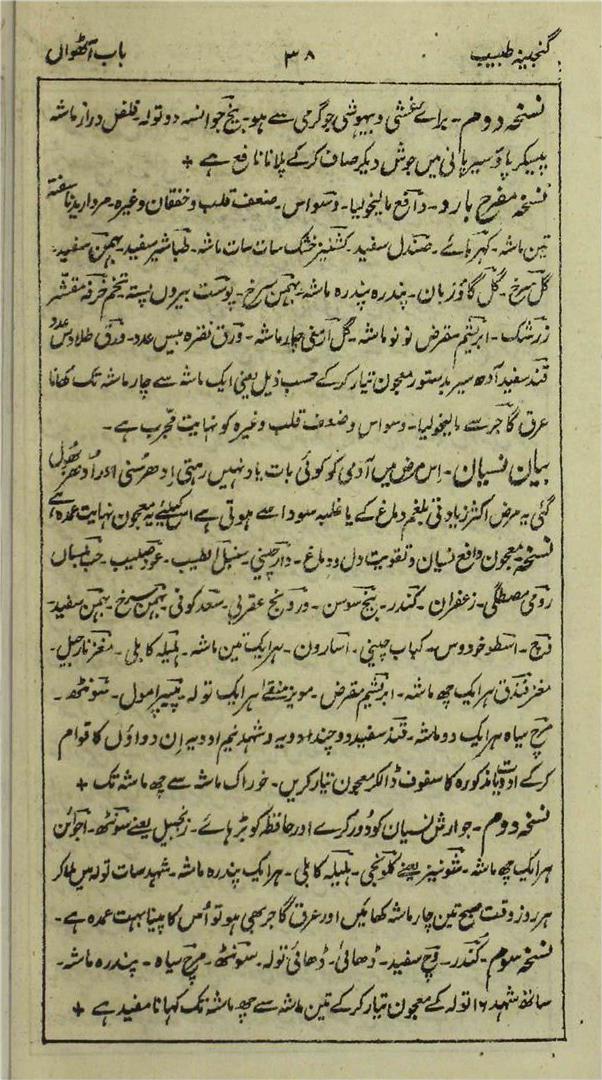 گنجینہ طبیب ۳۸ باب آٹھواں
نسخہ دوم۔ براے غشی و بیہوشی جو گرمی سے ہو۔ بیخ جوانسہ دو تولہ۔ فلفل دراز ماشہ
پیسکر پاؤ سیر پانی میں جوش دیکر صاف کر کے پلانا نافع ہے +
نسخہ مفرح بارد۔ دافع مالیخولیا۔ وسواس۔ ضعف قلب و خفقان وغیرہ۔ مروارید ناسفتہ
تین ماشہ۔ کہربائے۔ صندل سفید۔ کشنیز خشک سات سات ماشہ۔ طباشیر سفید۔ بہمن سفید۔
گل سرخ۔ گل گاؤزبان۔ پندرہ پندرہ ماشہ۔ بہمن سرخ۔ پوست بیروں پستہ تخم خرفہ مقشر
زرشک۔ ابریشم مقرض نو نو ماشہ۔ گل ارمنی چار ماشہ۔ ورق نقرہ بیس عدد۔ ورق طلا دس عدد
قند سفید آدھ سیر بدستور معجون تیار کر کے حسب ذیل یعنی ایک ماشہ سے چار ماشہ تک کھانا
عرق گاجر سے مالیخولیا۔ وسواس و ضعف قلب وغیرہ کو نہایت مجرب ہے۔
بیان نسیان۔ اس مرض میں آدمی کو کوئی بات یاد نہیں رہتی اِدھر سُنی اور اُدھر بھول
گئی یہ مرض اکثر زیادتی بلغم دماغ کے یا غلبہ سودا سے ہوتی ہے اس کیلئے یہ معجون نہایت عمدہ ہے
نسخہ۔ معجون دافع نسیان و تقویت دل و دماغ۔ دارچینی۔ سنبل الطیب۔ عود صلیب۔ حب بلساں
رومی مصطگی۔ زعفران۔ کندر۔ بیخ سوسن۔ درونج عقربی۔ سعد کوفی۔ بہمن سرخ۔ بہمن سفید۔
وج۔ اسطوخودوس۔ کباب چینی۔ اسارون۔ ہر ایک تین ماشہ۔ ہلیلہ کابلی۔ مغز نارجیل۔
مغز فندق ہر ایک چھ ماشہ۔ ابریشم مقرض۔ مویز منقے ہر ایک تولہ۔ پیپرامول۔ سونٹھ۔
مرچ سیاہ ہر ایک دو ماشہ۔ قند سفید دو چند ادویہ و شہد نیم ادویہ ان دواؤں کا قوام
کر کے ادویات مذکورہ کا سفوف ڈالکر معجون تیار کریں۔ خوراک ماشہ سے چھ ماشہ تک +
نسخہ دوم۔ جوارش نسیان کو دُور کرے اور حافظہ کو بڑہائے۔ زنجبیل یعنے سونٹھ۔ اجوائن
ہر ایک چھ ماشہ۔ شونیز یعنے کلونجی۔ ہلیلہ کابلی۔ ہر ایک پندرہ ماشہ۔ شہد سات تولہ میں ملا کر
ہر روز وقت صبح تین چار ماشہ کھائیں اور عرق گاجر بھی ہو تو اُس کا پینا بہت عمدہ ہے۔
نسخہ سوم۔ کندر۔ وج سفید۔ ڈھائی۔ ڈھائی تولہ۔ سونٹھ۔ مرچ سیاہ۔ پندرہ ماشہ۔
ساتھ شہد ۱۶ تولہ کے معجون تیار کر کے تین ماشہ سے چھ ماشہ تک کہانا مفید ہے +